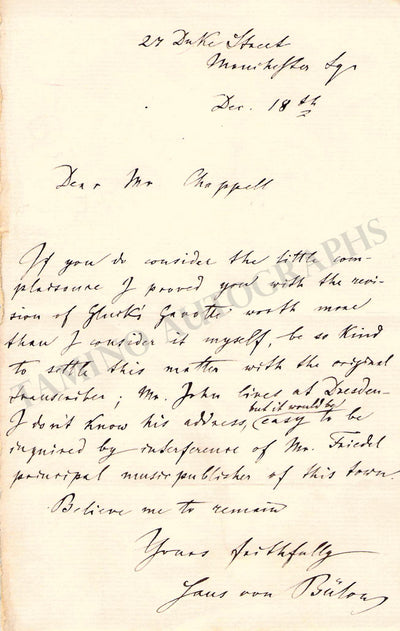 27 Duke Street
Manchester Sqr
Dec. 18th
Dear Mr Chappell
If you do consider the little com-
plaisance I proved you with the revi-
sion of Gluck's Gavotte worth more
than I consider it myself, be so kind
to settle this matter with the original
transcriber; Mr. John lives at Dresden
I don't know his address, but it would be easy to be
inquired by interference of Mr. Friedel
principal musicpublisher of this town.
Believe me to remain
Yours faithfully
Hans von Bülow
TAMINO AUTOGRAPHS